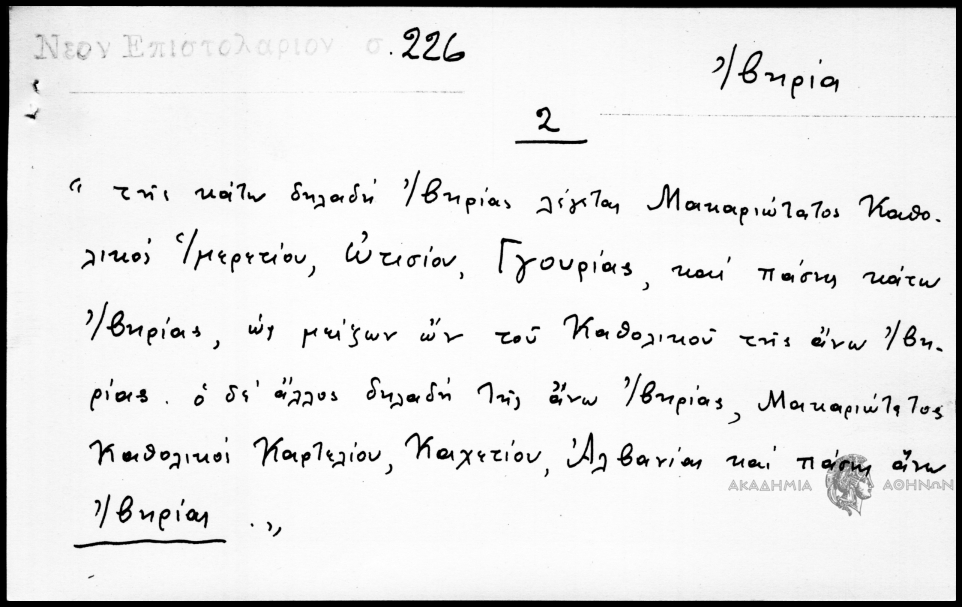 Νεον Επιστολαριον σ. 226
Ἰβηρία
2
“ τῆς κάτω δηλαδή Ἰβηρίας λέγεται Μακαριώτατος Καθο-
λικός Ἰμερετίου, Ὠτισίου, Γγουρίας, καί πάσης κάτω
Ἰβηρίας, ὡς μείζων ὤν τοῦ Καθολικοῦ τῆς ἄνω Ἰβη-
ρίας. ὁ δέ ἄλλος δηλαδή τῆς ἄνω Ἰβηρίας, Μακαριώτατος
Καθολικός Καρτελίου, Καχετίου, Ἀλβανίας καί πάσης ἄνω
ΑΚΑΔΗΜΙΑ ΑΘΗΝΩΝ
Ἰβηρίας .„